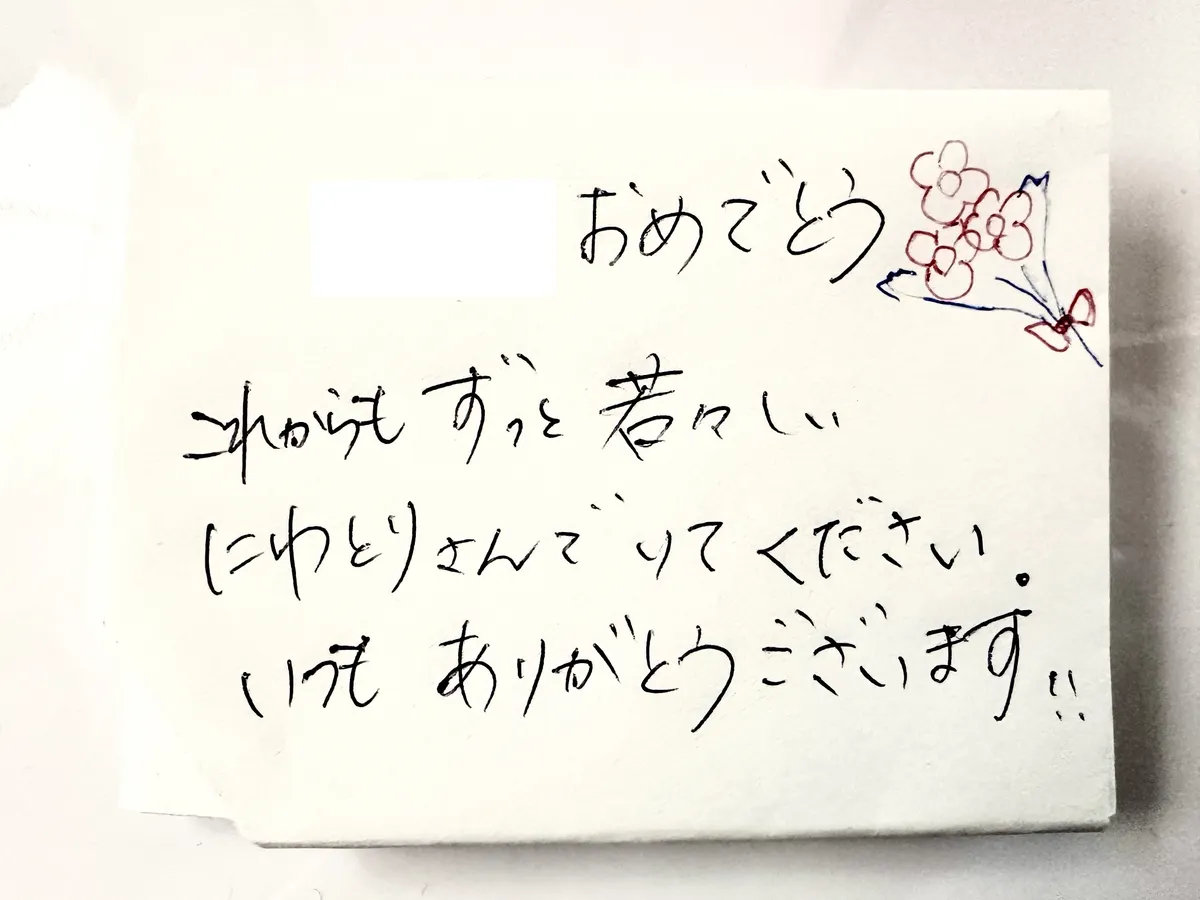 おめでとう
これからも ずっと 若々しい
にわとりさんで いて ください.
いつも ありがとうございます!!